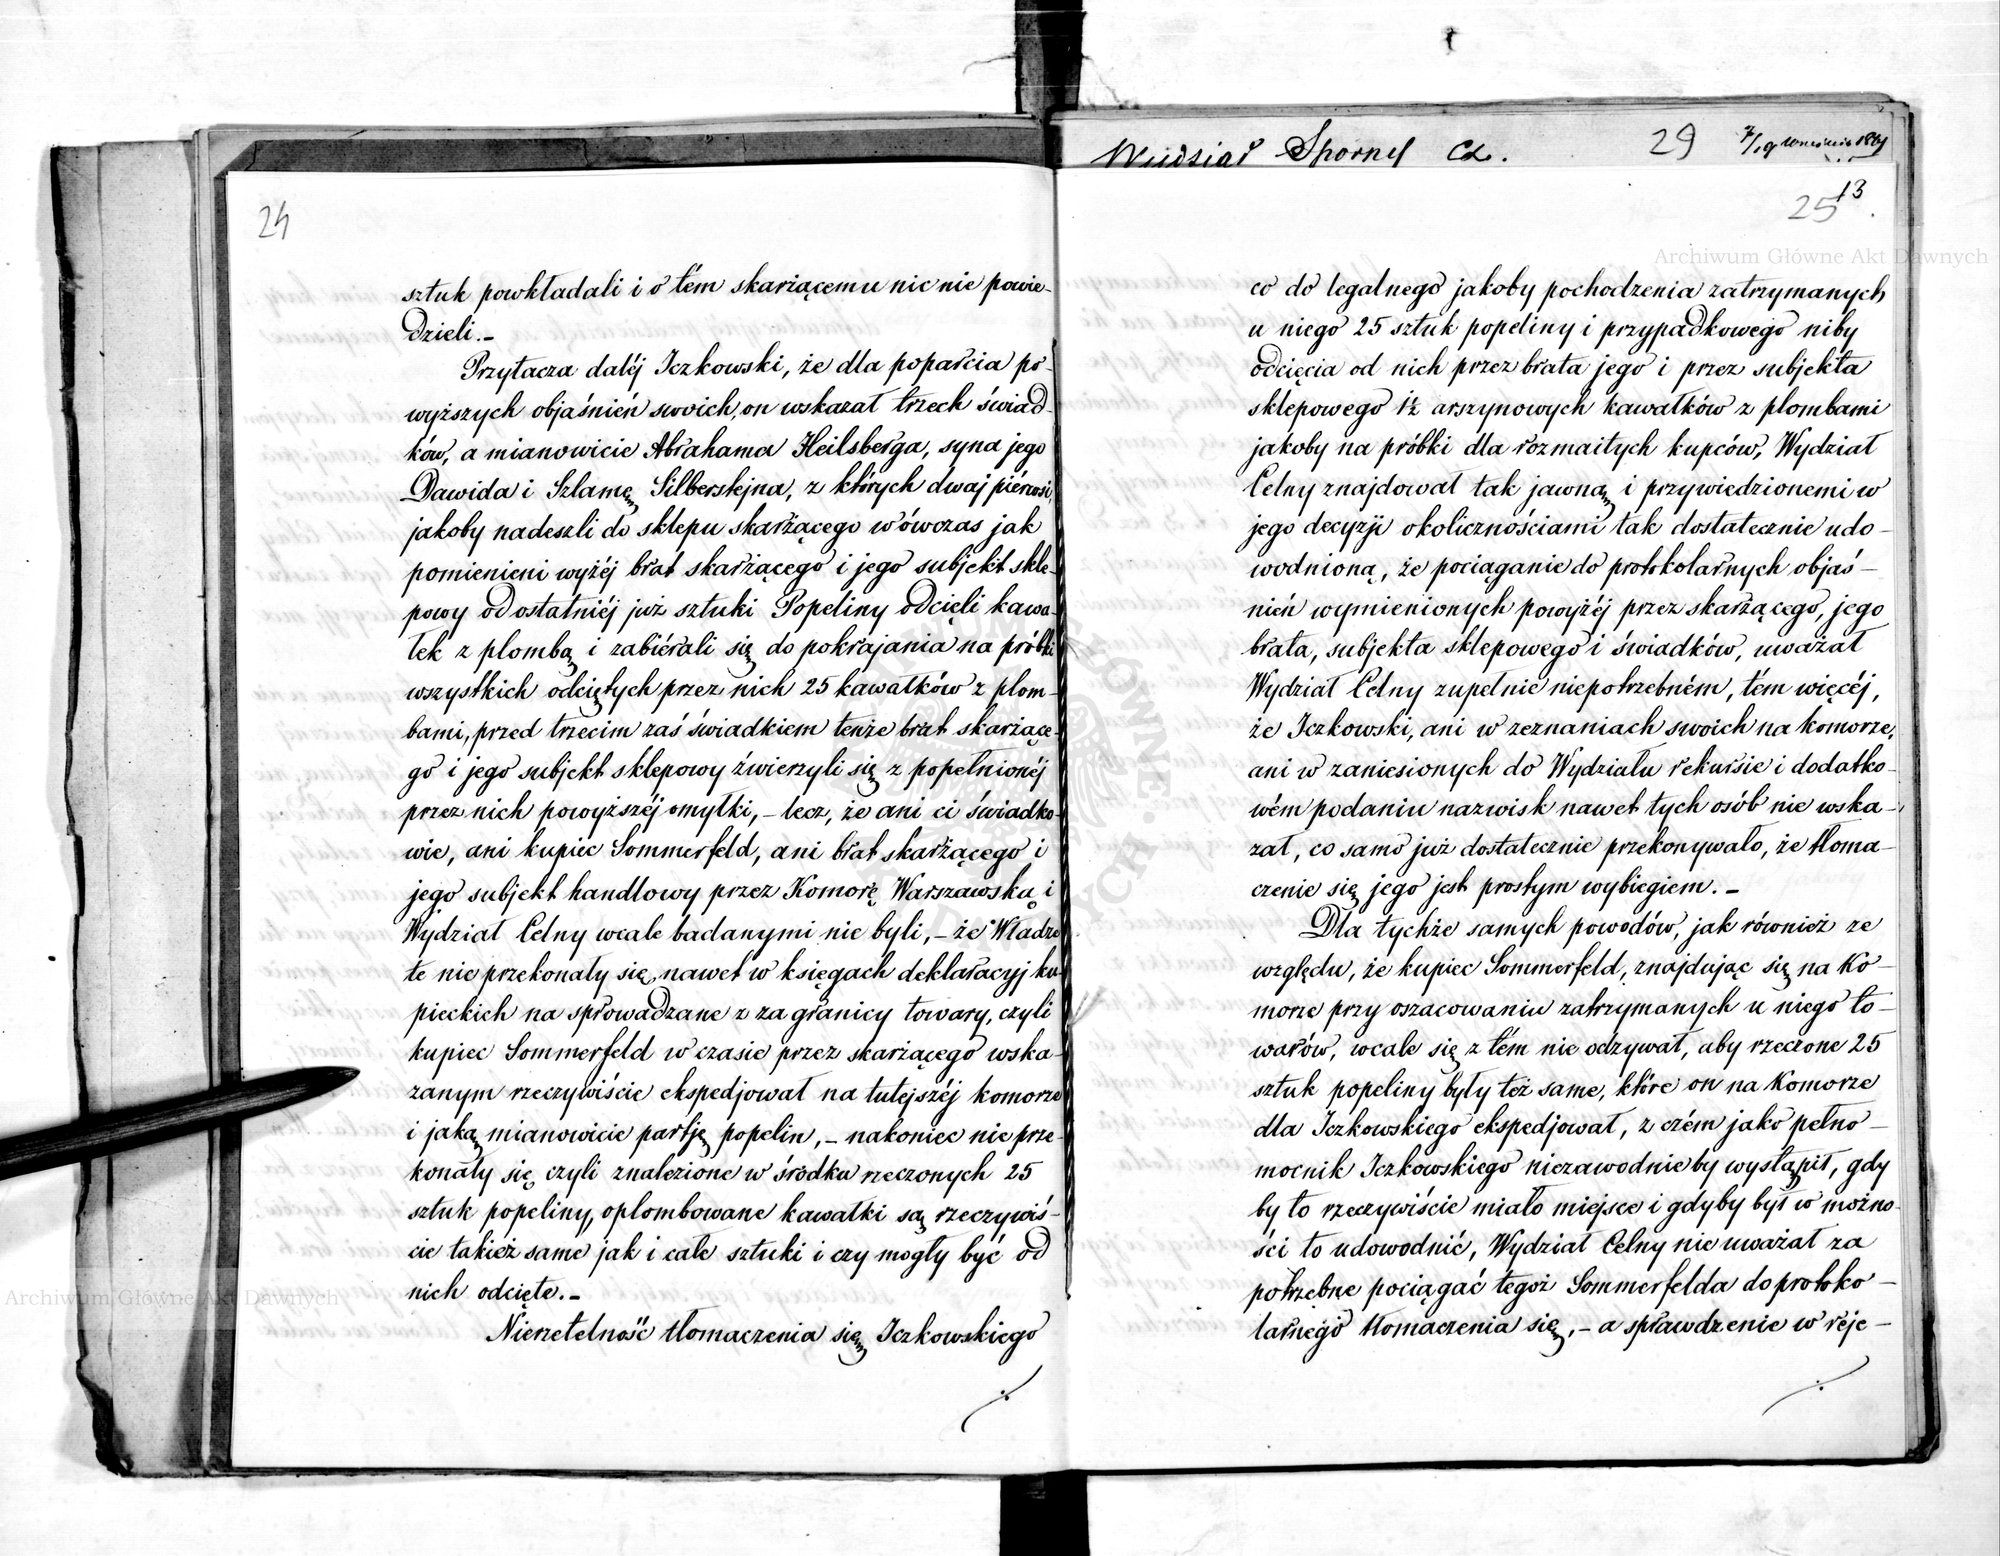 24
sztuk powkładali i o tém skarżącemu nic nie powie-
dzieli.-
Przytacza daléj Iczkowski, że dla poparcia po-
wyższych objaśnień swoich, on wskazał trzech świad-
ków, a mianowicie Abrahama Heilsberga, syna jego
Dawida i Szlamę Silberstejna, z których dwaj piérwsi,
jakoby nadeszli do sklepu skarżącego wówczas jak
pomienieni wyżéj brat skarżącego i jego subjekt skle-
powy od ostatniéj już sztuki Popeliny odcięli kawa-
łek z plombą i zabiérali się do pokrajania na próbki
wszystkich odciętych przez nich 25 kawałków z plom-
bami, przed trzecim zaś świadkiem tenże brat skarżące-
go i jego subjekt sklepowy źwierzyli się z popełnionéj
przez nich powyższéj omyłki, - lecz, że ani ci świadko-
wie, ani kupiec Sommerfeld, ani brat skarżącego i
jego subjekt handlowy przez Komorę Warszawską i
Wydział Celny wcale badanymi nie byli, - że Władze
te nie przekonały się, nawet w księgach deklaracyj ku-
pieckich na sprowadzane z zagranicy towary, czyli
kupiec Sommerfeld w czasie przez skarżącego wska-
zanym rzeczywiście ekspedjował na tutejszéj komorze
i jaką mianowicie partję popelin, - nakoniec nie prze-
konały się, czyli znalezione w środku rzeczonych 25
sztuk popeliny, oplombowane kawałki są rzeczywiś-
cie takież same jak i całe sztuki i czy mogły być od
nich odcięte.-
Nierzetelność tłomaczenia się Iczkowskiego
Wydział Sporny Cz. 29 7/19 1869
13
25
co do legalnego jakoby pochodzenia zatrzymanych
u niego 25 sztuk popeliny i przypadkowego niby
odcięcia od nich przez brata jego i przez subjekta
sklepowego 1½ arszynowych kawałków z plombami
jakoby na próbki dla rozmaitych kupców, Wydział
Celny znajdował tak jawną i przywiedzionemi w
jego decyzji okolicznościami tak dostatecznie udo-
wodnioną, że pociąganie do protokolarnych objaś-
nień wymienionych powyżéj przez skarżącego, jego
brata, subjekta sklepowego i świadków, uważał
Wydział Celny zupełnie niepotrzebném, tém więcéj,
że Iczkowski, ani w zeznaniach swoich na komorze,
ani w zaniesionych do Wydziału rekursie i dodatko-
wém podaniu nazwisk nawet tych osób nie wska-
zał, co samo już dostatecznie przekonywało, że tłoma-
czenie się jego jest prostym wybiegiem.-
Dla tychże samych powodów, jak również ze
względu, że kupiec Sommerfeld, znajdując się na Ko-
morze przy oszacowaniu zatrzymanych u niego to-
warów, wcale się z tém nie odzywał, aby rzeczone 25
sztuk popeliny były też same, które on na Komorze
dla Iczkowskiego ekspedjował, z czém jako pełno-
mocnik Iczkowskiego niezawodnieby wystąpił, gdy
by to rzeczywiście miało miejsce i gdyby był w możno-
ści to udowodnić, Wydział Celny nie uważał za
potrzebne pociągać tegoż Sommerfelda do protoko-
larnego tłomaczenia się, - a sprawdzenie w reje-
Archiwum Główne Akt Dawnych
Archiwum Główne Akt Dawnych